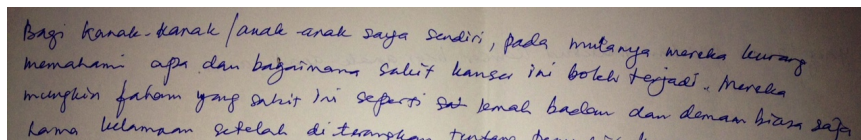 Bagi kanak-kanak / anak-anak saya sendiri, pada mulanya mereka kurang
memahami apa dan bagaimana sakit kanser ini boleh terjadi. Mereka
mungkin faham yang sakit ini seperti lemah badan dan demam biasa saja
Lama kelamaan setelah diterangkan tentang